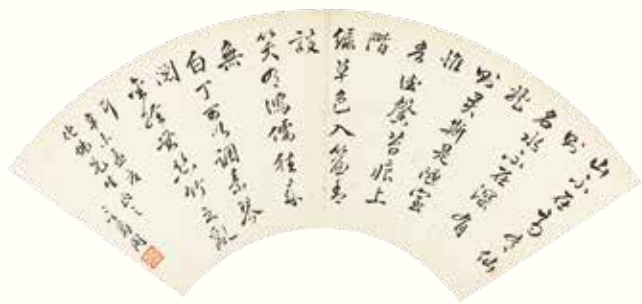 山不在高有仙
則
名水不在深有
龍
則灵斯是陋室
惟
吾德馨苔痕上
階
緑草色入簾青
談
笑有鴻儒往來
無
白丁可以调素琴
閲
金經無絲竹之亂
先生